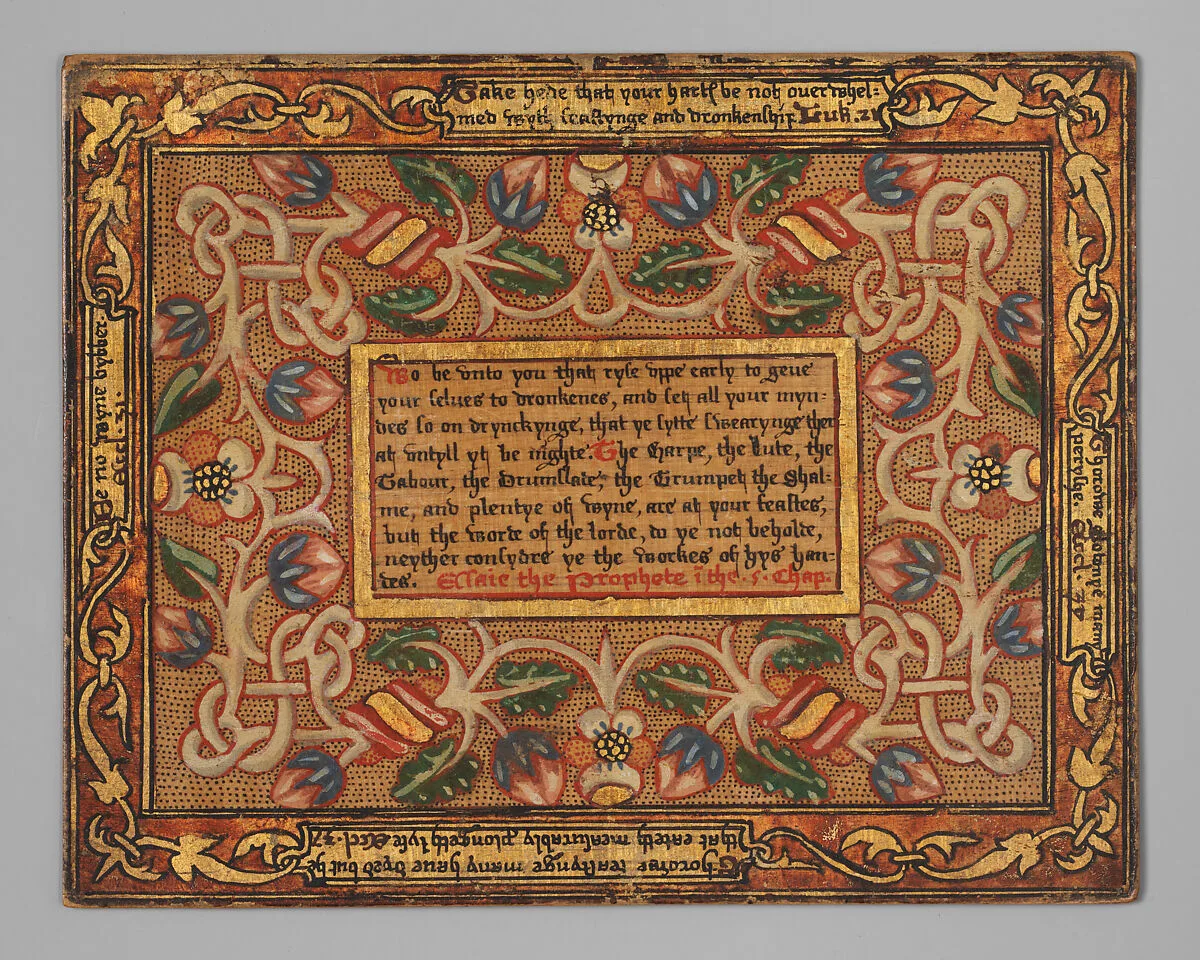 Take hede that your harts be not overwhel=
med wyth feastynge and dronkenship. Luk. 21
Wo be vnto you that ryse vppe early to geue
your selues to dronkenes, and set all your myn-
des so on drynckynge, that ye sytte swearynge ther
at vntyll yt be nighte. The Harpe, the Lute, the
Tabour, the Drumslade, the Trumpet the Shal-
me, and plentye of wyne, are at your feastes,
but the worde of the lorde, do ye not beholde,
neyther consydre ye the workes of hys han-
des. Esaie the Prophete ī the .5. Chap.
Thorowe dronkenes many
peryshe. Eccl. 37
Thorowe feastynge many haue dyed but he
that eateth measurably prolongeth lyfe Eccl. 37
Be no wyne bybber
Eccl. 31.